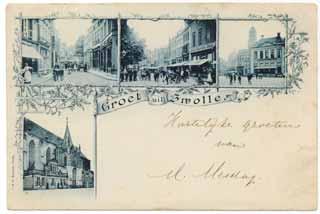 Groet uit Zwolle
Hartelijke groeten
van
M.